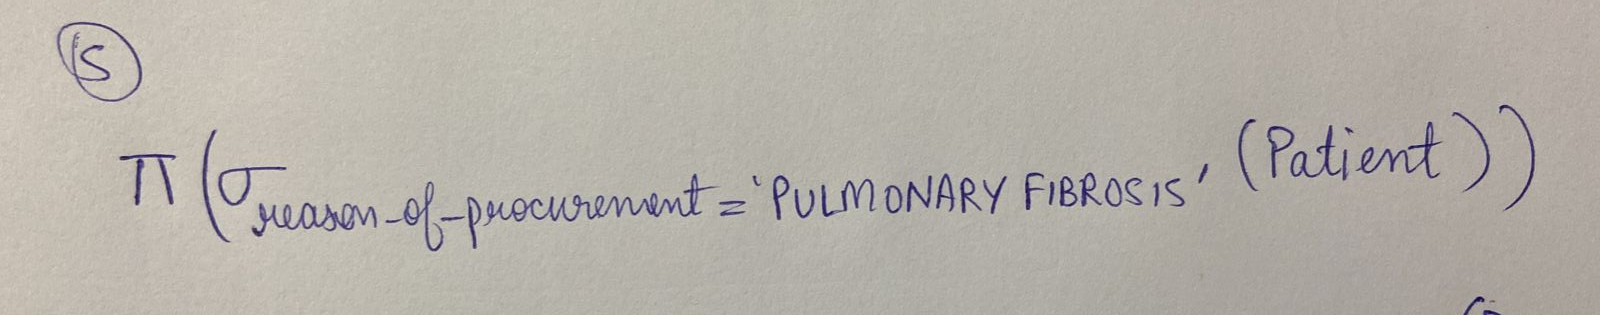 5
π (σ reason_of_procurement = 'PULMONARY FIBROSIS' (Patient))